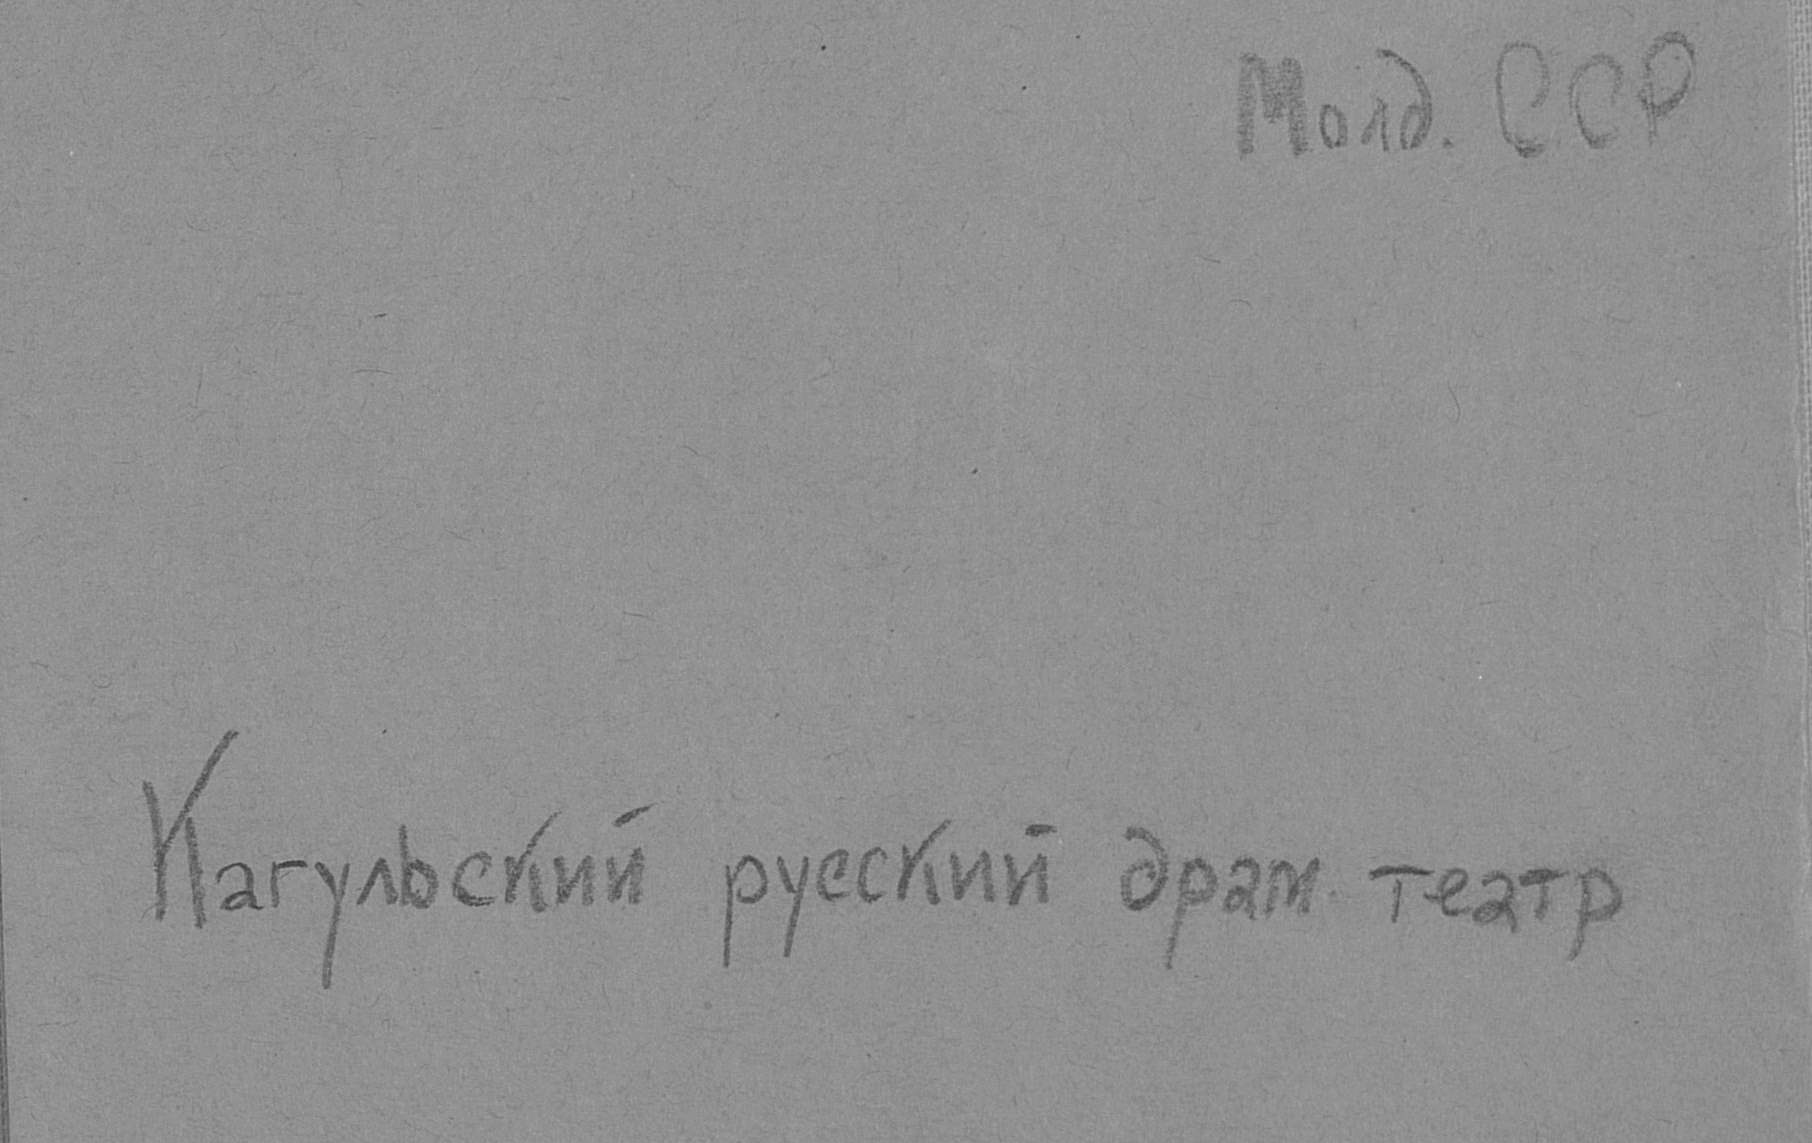 Молд. ССР
Кагульский русский драм. театр